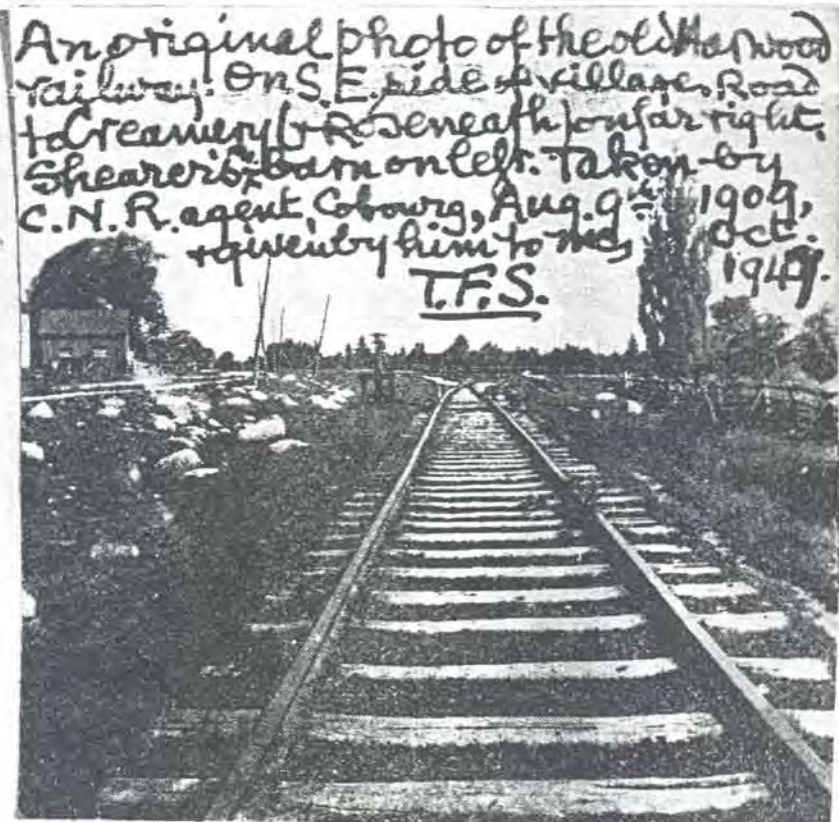 An original photo of the old Harwood
railway. On S.E. side of village. Road
to Creamery (& Roseneath) on far right.
Shearer's barn on left. Taken by
C.N.R. agent, Cobourg, Aug. 9th 1909,
& given by him to me, Oct.
1949.
T.F.S.